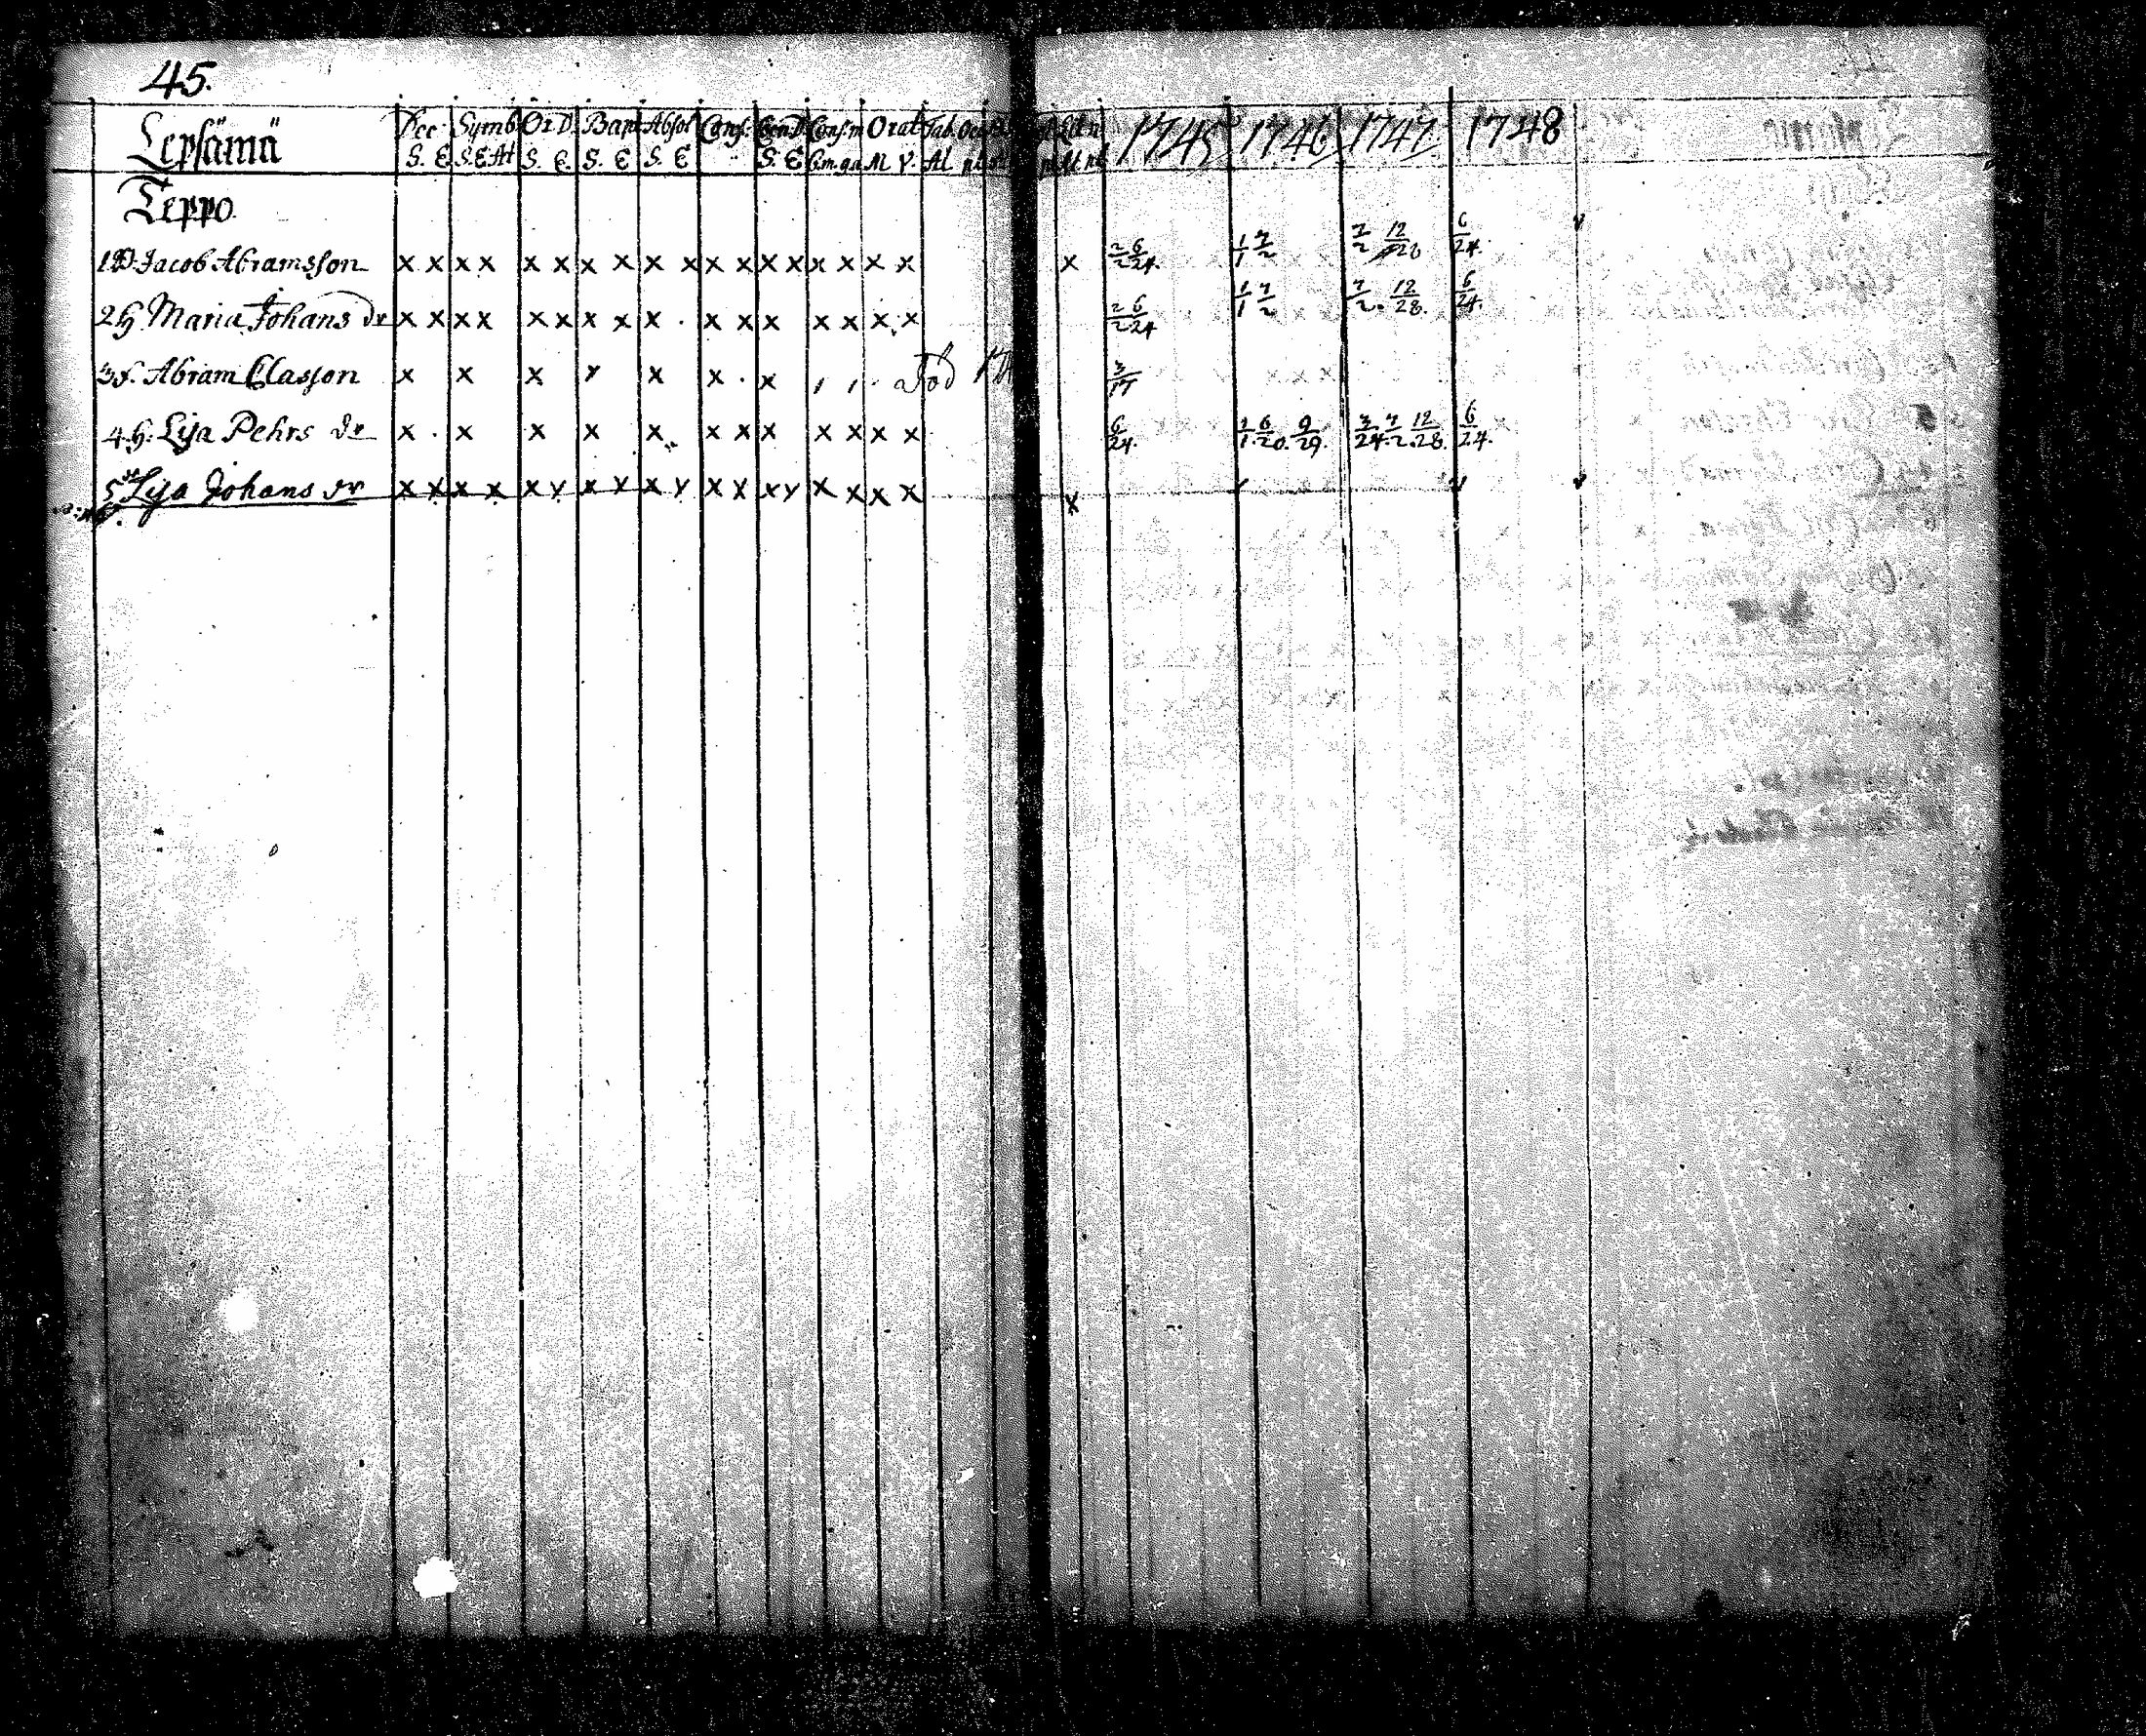 45.
Lepsämä Dec. Symb. Or. D. Bapt. Absol Conf. Cœn. D. Conf. m. Orat. Tab. Oec. 1745 1746 1747 1748
S. E S. E. At S. E. S. E S. E S. E C. m. g. a. M V. Al
Teppo.
1 Jacob Abramsson x x x x x x x x x x x x x x x x x x x 2/2 6/24. 1/1 7/2 7/2 12/28 6/24.
2 H. Maria Johans dr x x x x x x x x x . x x x x x x x 2/2 6/24 1/1 7/2 7/2. 12/28. 6/24.
3 f. Abram Classon x x x x x x . x , , . Död 17 3/17
4. H. Lisa Pehrs dr x . x x x x x x x x x x x 6/24. 1/1. 6/20. 9/29. 3/24. 7/2. 12/28. 6/24.
5 Lisa Johans dr x x x x x x x x x x x x x x x x x x x